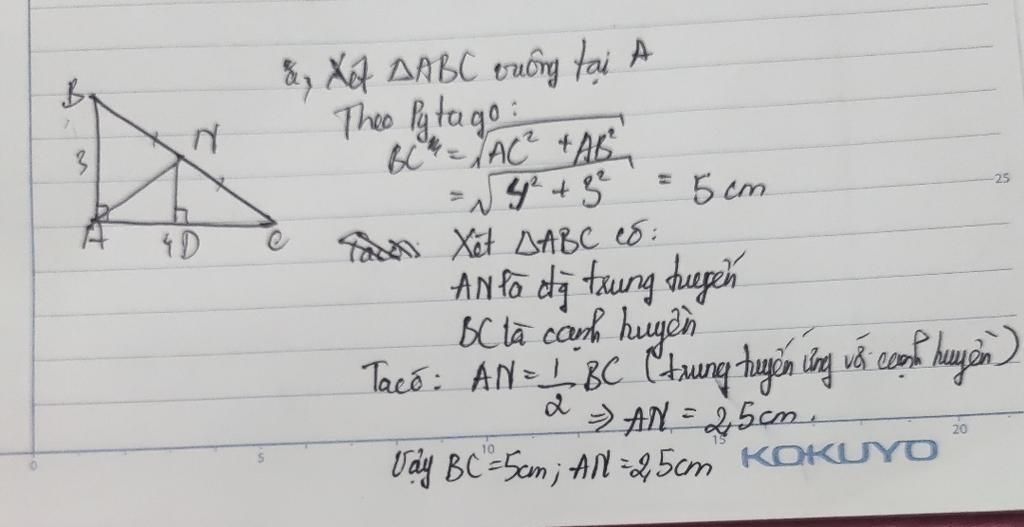 a, Xét ΔABC vuông tại A
Theo Pytago:
BC = √AC² + AB²
= √4² + 3² = 5 cm
Xét ΔABC có:
AN là đg trung tuyến
BC là cạnh huyền
Ta có: AN = 1/2 BC (trung tuyến ứng với cạnh huyền)
⇒ AN = 2,5cm.
Vậy BC = 5cm; AN = 2,5cm
B
N
3
A
4
D
C
25
0
5
10
15
20
KOKUYO